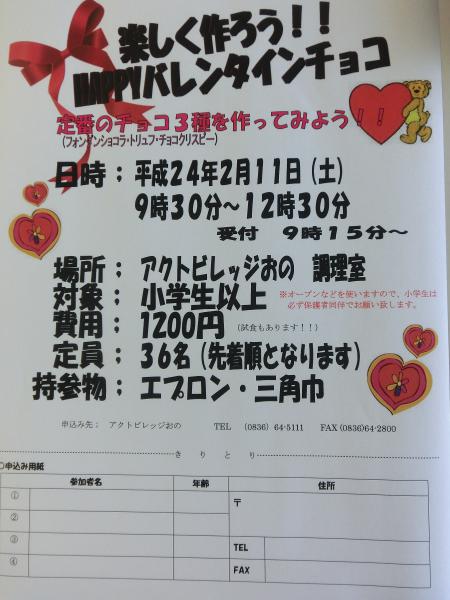 楽しく作ろう！！
HAPPYバレンタインチョコ
定番のチョコ３種を作ってみよう！！
（フォンダンショコラ・トリュフ・チョコクリスピー）
日時： 平成２４年２月１１日（土）
９時３０分～１２時３０分
受付 ９時１５分～
場所： アクトビレッジおの 調理室
対象： 小学生以上 ※オーブンなどを使いますので、小学生は
必ず保護者同伴でお願い致します。
費用： １２００円（試食もあります！！）
定員： ３６名（先着順となります）
持参物： エプロン・三角巾
申込み先： アクトビレッジおの TEL (0836) 64-5111 FAX (0836)64-2800
きりとり
○申込み用紙
参加者名 年齢 住所
① 〒
②
③ TEL
④ FAX